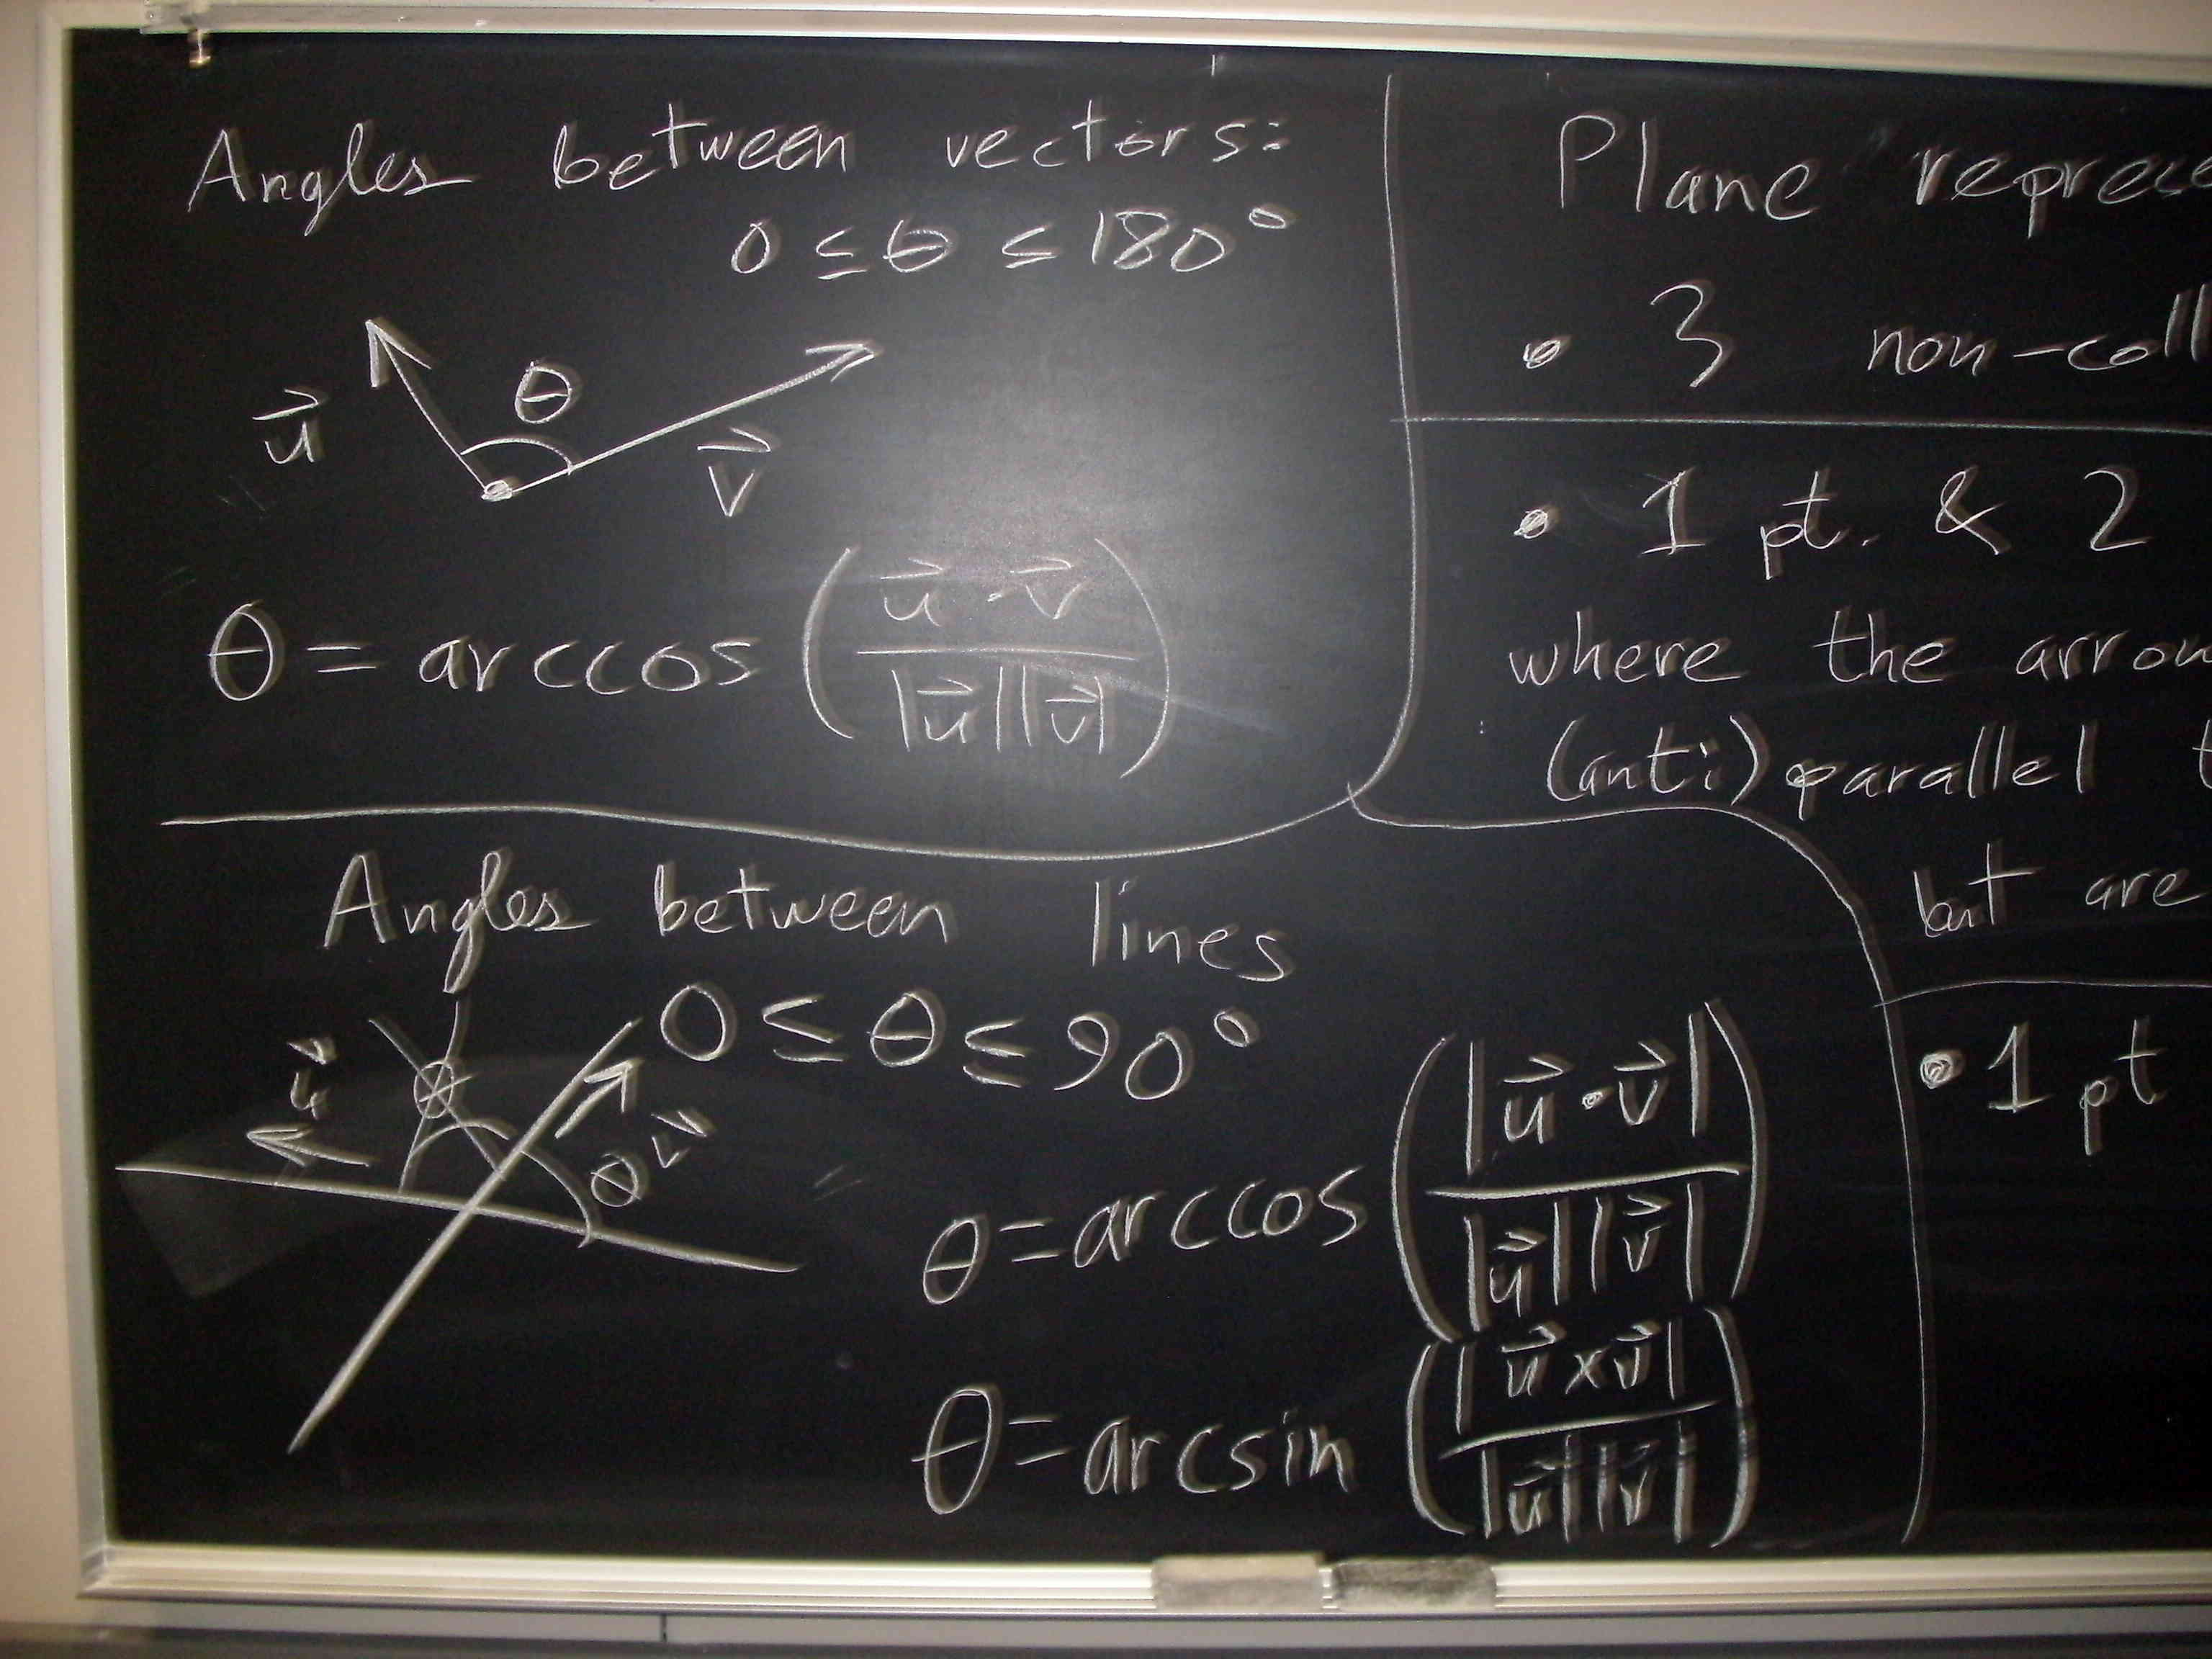 Angles between vectors:
0 ≤ θ ≤ 180°
θ
u⃗
v⃗
θ = arccos (u⃗ · v⃗ / |u⃗||v⃗|)
Angles between lines
0 ≤ θ ≤ 90°
u⃗
θ
v⃗
θ
θ = arccos (|u⃗ · v⃗| / |u⃗||v⃗|)
θ = arcsin (|u⃗ × v⃗| / |u⃗||v⃗|)
Plane
• 3 non-coll
• 1 pt. & 2
where the arrow
(anti) parallel
but are
• 1 pt